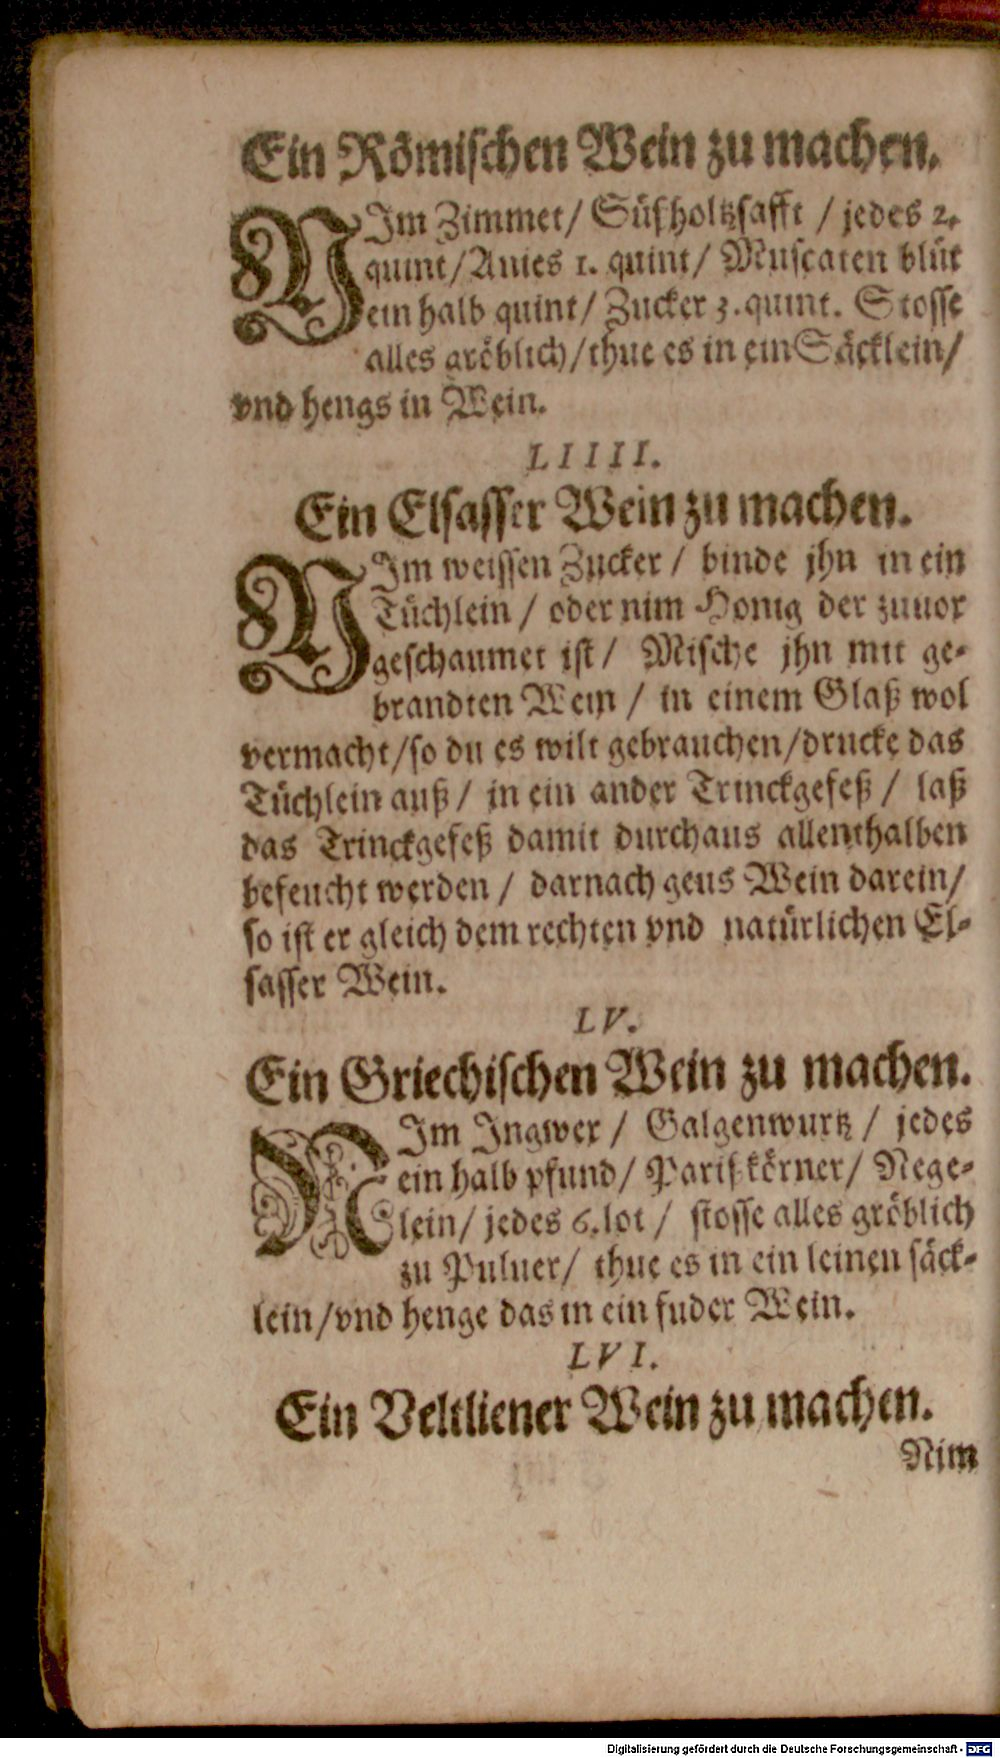 Ein Römischen Wein zu machen.
NIm Zimmet/ Süßholtzsafft / jedes 2.
quint/Anies 1. quint/ Muscaten blüt
ein halb quint/ Zucker 3. quint. Stosse
alles gröblich/thue es in ein Säcklein/
vnd hengs in Wein.
LIIII.
Ein Elsasser Wein zu machen.
NIm weissen Zucker / binde jhn in ein
Tüchlein / oder nim Honig der zuuor
geschaumet ist/ Mische jhn mit ge-
brandten Wein / in einem Glaß wol
vermacht/so du es wilt gebrauchen/drucke das
Tüchlein auß/ in ein ander Trinckgefeß / laß
das Trinckgefeß damit durchaus allenthalben
befeucht werden / darnach geus Wein darein/
so ist er gleich dem rechten vnd natürlichen El-
sasser Wein.
LV.
Ein Griechischen Wein zu machen.
NIm Ingwer / Galgenwurtz / jedes
ein halb pfund/ Parißkörner/ Nege-
lein/ jedes 6.lot / stosse alles gröblich
zu Puluer/ thue es in ein leinen säck-
lein/vnd henge das in ein fuder Wein.
LVI.
Ein Veltliener Wein zu machen.
Nim
Digitalisierung gefördert durch die Deutsche Forschungsgemeinschaft - DFG